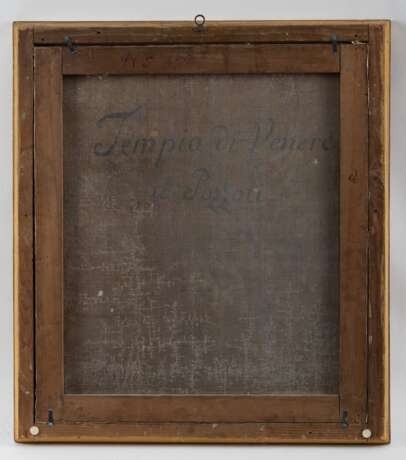 Tempio di Venere
a Pozzoli